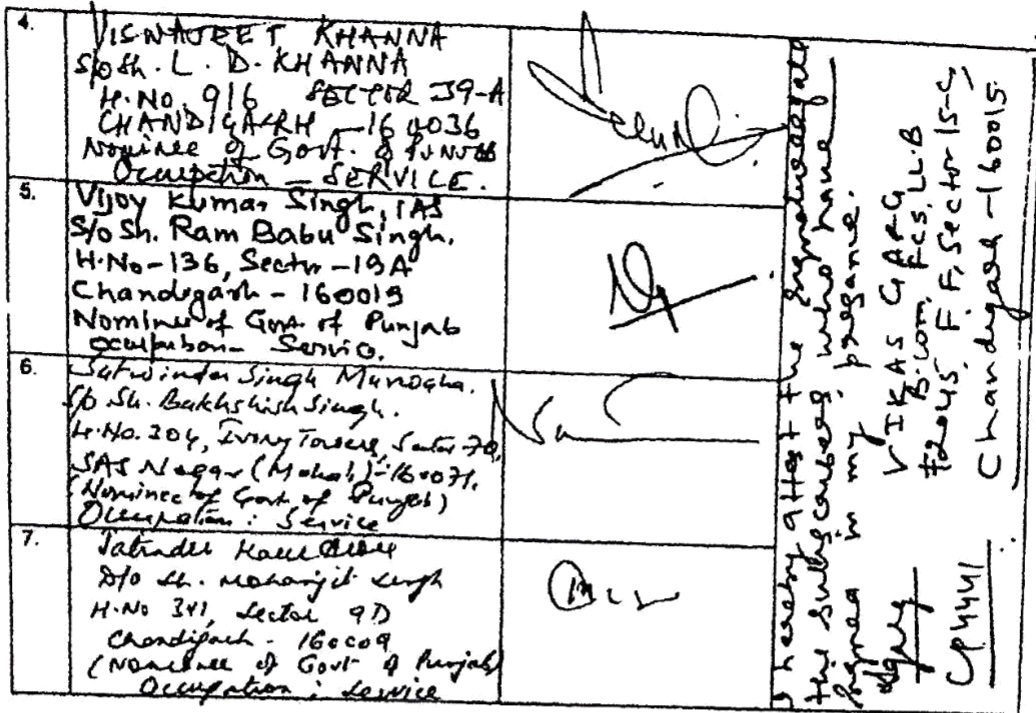 4.
VISWAJEET KHANNA
S/o Sh. L. D. KHANNA
H.No. 916 SECTOR 39-A
CHANDIGARH - 160036
Nominee of Govt. of PUNJAB
Occupation - SERVICE.
5.
Vijoy Kumar Singh, IAS
S/o Sh. Ram Babu Singh.
H.No-136, Sector-19A
Chandigarh - 160019
Nominee of Govt. of Punjab
Occupation - Service.
6.
Satwinder Singh
S/o Sh. Bakhshish Singh.
H.No. 304, Ivory Towers, Sector 70,
SAS Nagar (Mohali)-160071.
(Nominee of Govt. of Punjab)
Occupation: Service
7.
Jatinder Kaur
D/o Sh. Mohanjit Singh
H.No 341, Sector 9D
Chandigarh - 160009
(Nominee of Govt of Punjab)
Occupation: Service
I hereby attest the signatures of all
the subscribers, who have
signed in my presence.
VIKAS GARG
B.Com. FCS, LLB
#2045 F.F, Sector 15-C
Chandigarh-160015
CP4441